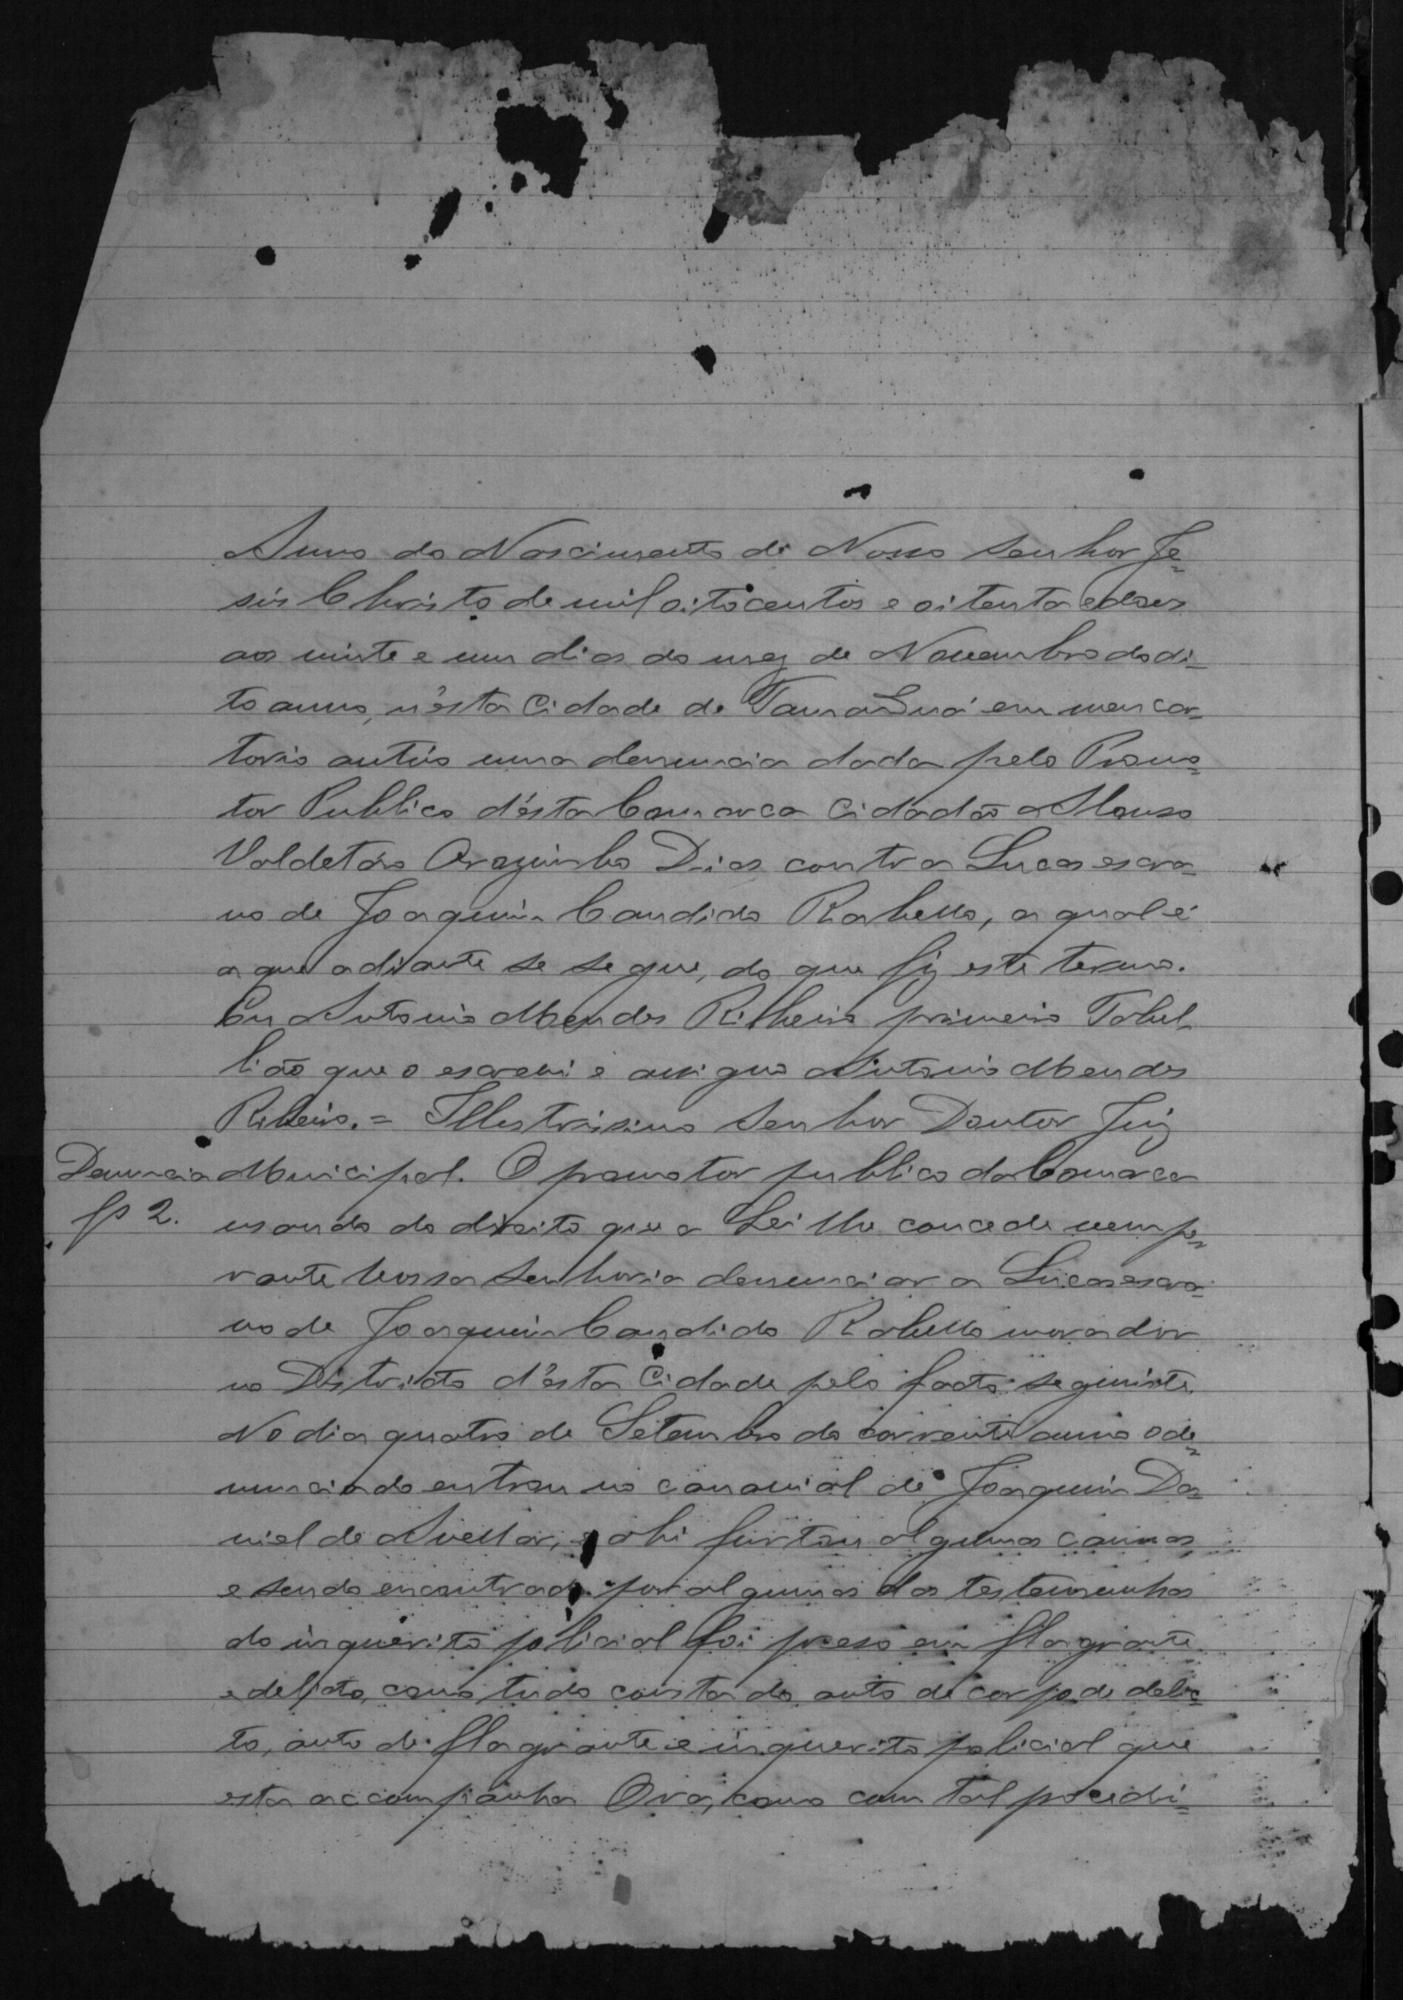 Anno do Nascimento de Nosso Senhor Je-
sús Christo de mil oitocentos e oitenta e dous
aos vinte e um dias do mez de Novembro do di-
to anno, n'ésta Cidade de em meu car-
torio autúo uma denuncia dada pelo Promo-
tor Publico d'ésta Comarca Cidadão Affonso
Valdetáro Dias contra Lucas escra-
vo de Joaquim Candido Rabello, a qual é
a que adiante se segue, do que fiz este termo.
Eu Antonio Mendes Ribeiro primeiro Tabel-
lião que o escrevi e assigno Antonio Mendes
Ribeiro. = Illustrissimo Senhor Doutor Juiz
Denuncia Municipal. O promotor publico da Comarca
fs 2. usando do direito que a Lei lhe concede vem pe-
rante Vossa Senhoria denunciar a Lucas escra-
vo de Joaquim Candido Rabello morador
no Districto d'ésta Cidade pelo facto seguinte.
No dia quatro de Setembro do corrente anno o de-
nunciado entrou no canavial de Joaquim Da-
niel de Avellar, e ahi furtou algumas cannas,
e sendo encontrado por algumas das testemunhas
do inquerito policial foi preso em flagrante
e delicto, como tudo consta do auto de corpo de delic-
to, auto de flagrante e inquerito policial que
esta accompanha Ora, como com tal procedi-